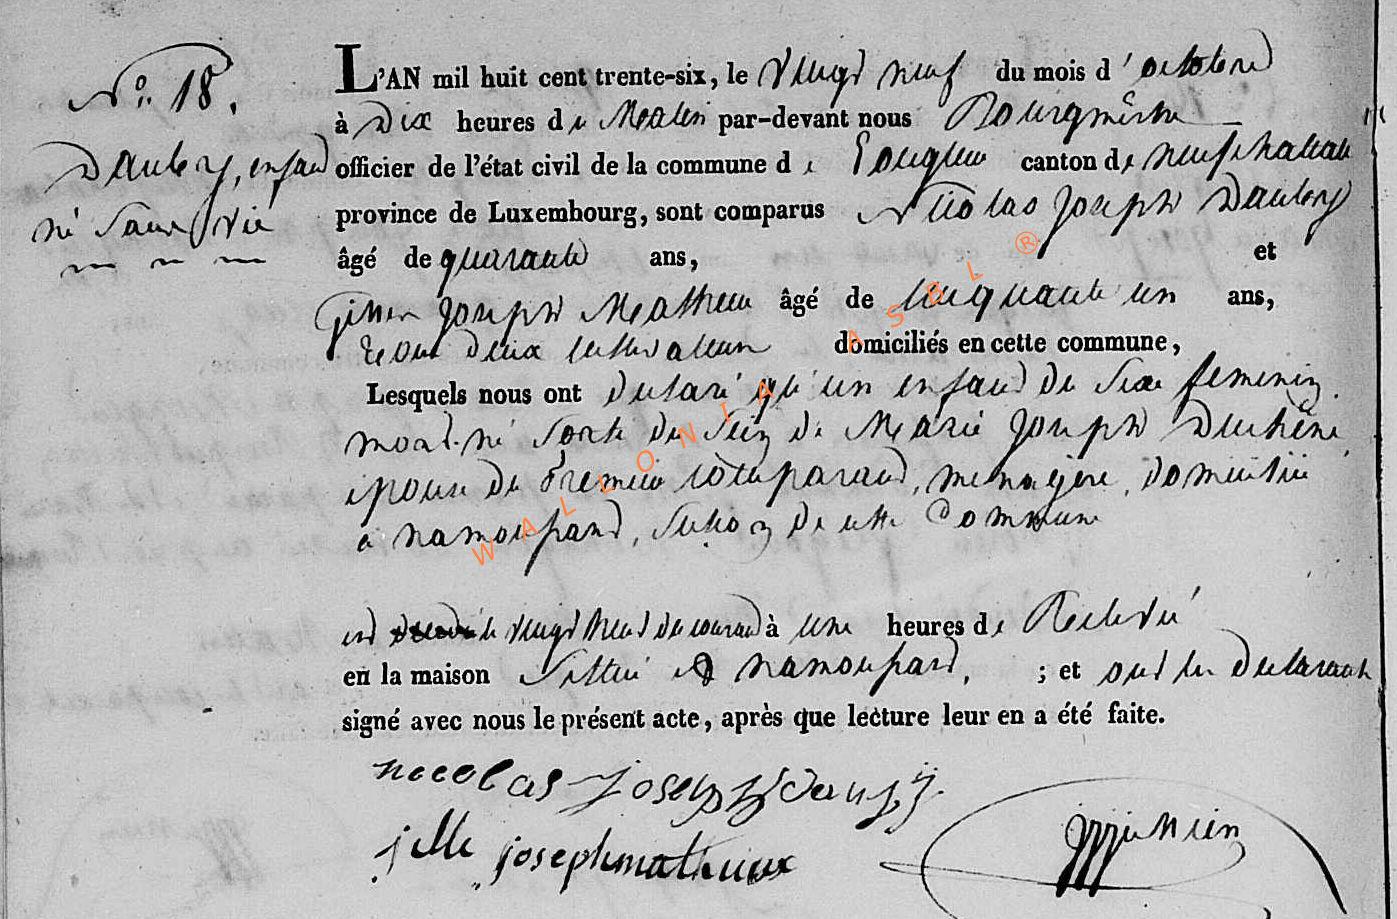 N° 18.
Dauby, enfant
né sans vie
L'AN mil huit cent trente-six, le vingt neuf du mois d'octobre
à Dix heures du Matin par-devant nous Bourgmestre
officier de l'état civil de la commune de canton de neufchateau
province de Luxembourg, sont comparus Nicolas Joseph Dauby
âgé de quarante ans, et
Joseph Mathieu âgé de cinquante un ans,
tous deux cultivateurs domiciliés en cette commune,
Lesquels nous ont declaré qu'un enfant du sexe feminin
mort-né sorti du sein de Marie Joseph Duchêne
épouse du premier comparant, menagère, domiciliée
à namoupard, section de cette Commune
est le vingt neuf du courant à une heures de Relevée
en la maison sittuée à namoupard, ; et ont les declarants
signé avec nous le présent acte, après que lecture leur en a été faite.
nicolas joseph dauby
jille joseph mathieux
WALLONIA ASBL ®